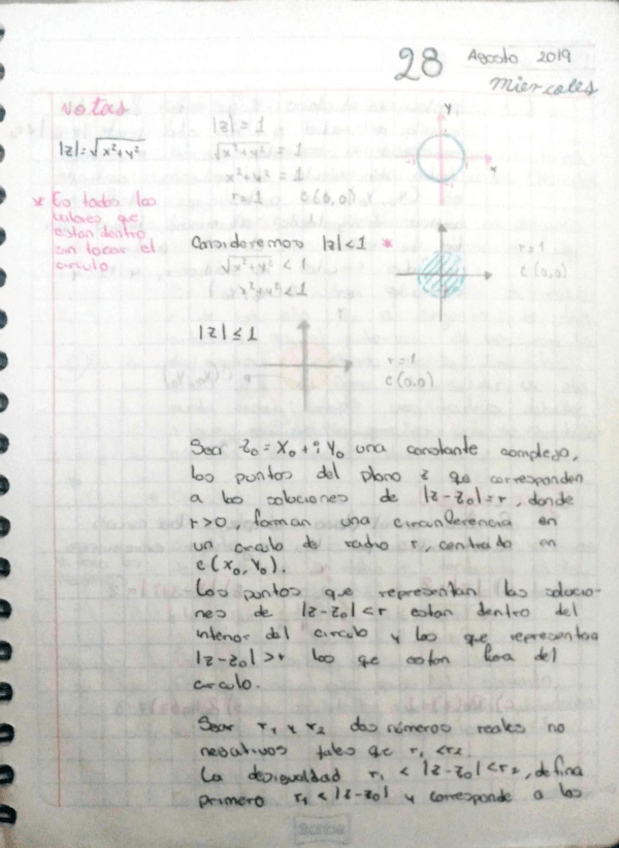 28 Agosto 2019
miercoles
Notas
|z|=√x²+y²
* Es todos los
valores que
estan dentro
sin tocar el
circulo
|z|=1
√x²+y² = 1
x²+y² = 1
r=1 c(0,0)
y
x
Consideremos |z|<1 *
√x²+y² < 1
x²+y² < 1
r=1
c(0,0)
|z|≤1
r=1
c(0,0)
Sea z₀ = x₀ + i y₀ una constante compleja,
los puntos del plano z que corresponden
a las soluciones de |z-z₀|=r, donde
r>0, forman una circunferencia en
un circulo de radio r, centrado en
c(x₀, y₀).
Los puntos que representan las solucio-
nes de |z-z₀|<r estan dentro del
interior del circulo y los que representan
|z-z₀|>r los que estan fuera del
circulo.
Sear r₁ y r₂ dos números reales no
negativos tales que r₁ < r₂
La desigualdad r₁ < |z-z₀| < r₂, defina
primero r₁ < |z-z₀| y corresponde a los
Scribe